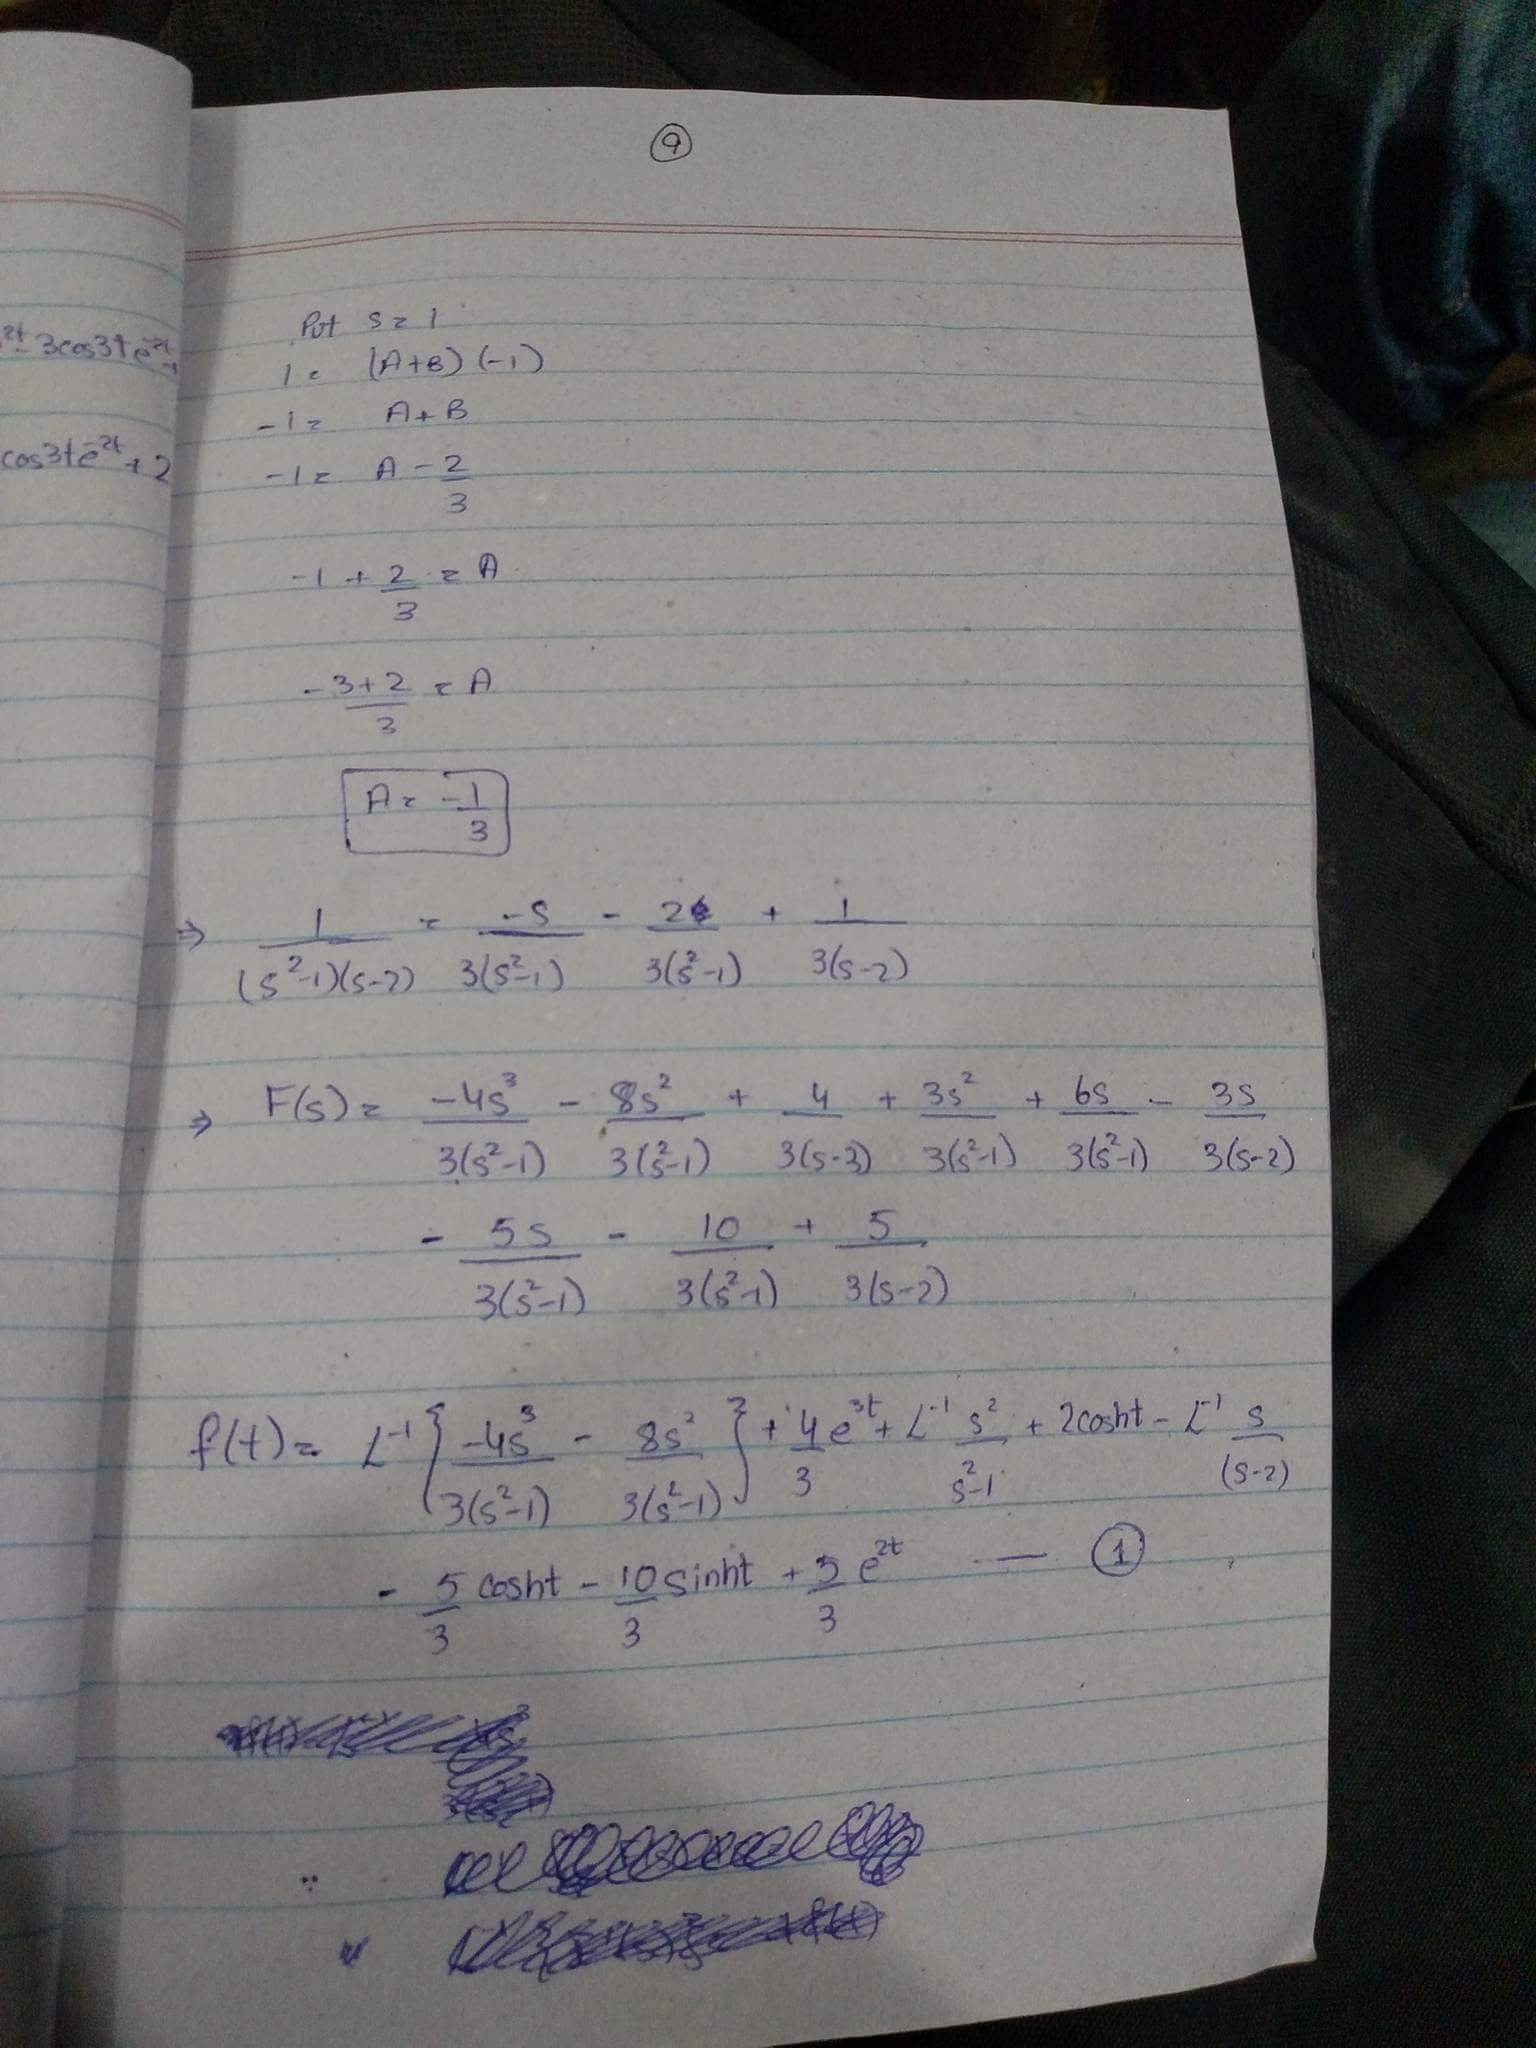 9
2t - 3cos3t e^-2t
cos3t e^-2t + 2
Put s = 1
1 = (A+B) (-1)
-1 = A + B
-1 = A - 2/3
-1 + 2/3 = A
-3+2/3 = A
A = -1/3
⇒ 1/(s²-1)(s-2) = -s/3(s²-1) - 2/3(s²-1) + 1/3(s-2)
⇒ F(s) = -4s³/3(s²-1) - 8s²/3(s²-1) + 4/3(s-3) + 3s²/3(s²-1) + 6s/3(s²-1) - 3s/3(s-2)
- 5s/3(s²-1) - 10/3(s²-1) + 5/3(s-2)
f(t) = L⁻¹ { -4s³/3(s²-1) - 8s²/3(s²-1) } + 4/3 e^3t + L⁻¹ s²/s²-1 + 2cosht - L⁻¹ s/(s-2)
- 5/3 cosht - 10/3 sinht + 5/3 e^2t — ①